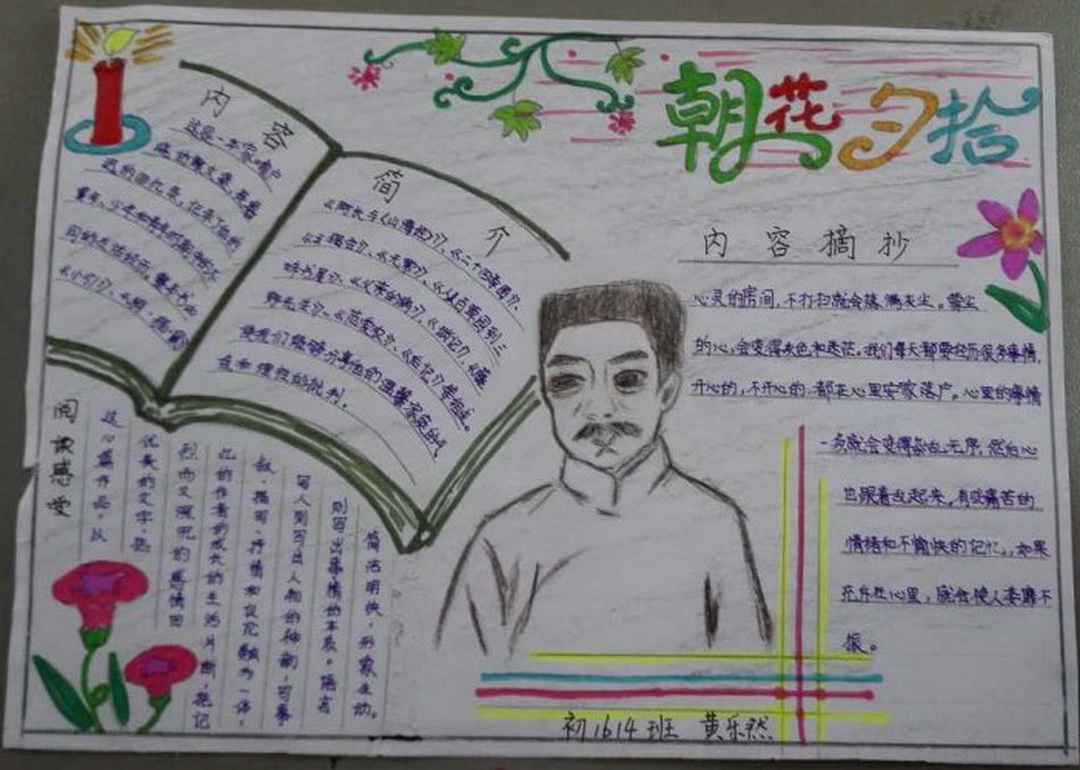 朝花夕拾
内容
这是一本家喻户
晓的散文集,是鲁
迅的回忆录,记录了他的
童年、少年和青年时期的生
同的生活经历,整本书由
《小引》、《狗·猫·鼠》
简介
《阿长与〈山海经〉》、《二十四孝图》、
《五猖会》、《无常》、《从百草园到三
味书屋》、《父亲的病》、《琐记》、《藤
野先生》、《范爱农》、《后记》等组成。
使我们能够分享他的温馨
和理性的批判。
内容摘抄
心灵的房间,不打扫就会落满灰尘。蒙尘
的心,会变得灰色和迷茫。我们每天都要经历很多事情,
开心的,不开心的,都在心里安家落户。心里的事情
一多就会变得杂乱无序,然后心
也跟着乱起来。有些痛苦的
情绪和不愉快的记忆,如果
充斥在心里,就会使人委靡不
振。
阅读感受
这几篇作品,以
优美的文字,热
烈而又深沉的感情回
忆的作者的成长的生活片断,把记
叙、描写、抒情和议论融为一体,
写人则写出人物的神韵,写事
则写出事情的本质。语言
简洁明快,形象生动。
初1614班 黄乐然